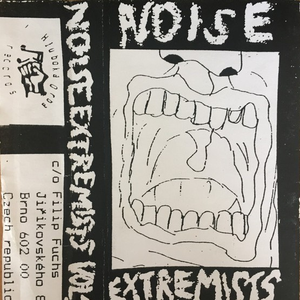 records
NOISE EXTREMISTS VOL
c/o Filip Fuchs
Jiříkovského 8
Brno 602 00
Czech republic
NOISE
EXTREMISTS